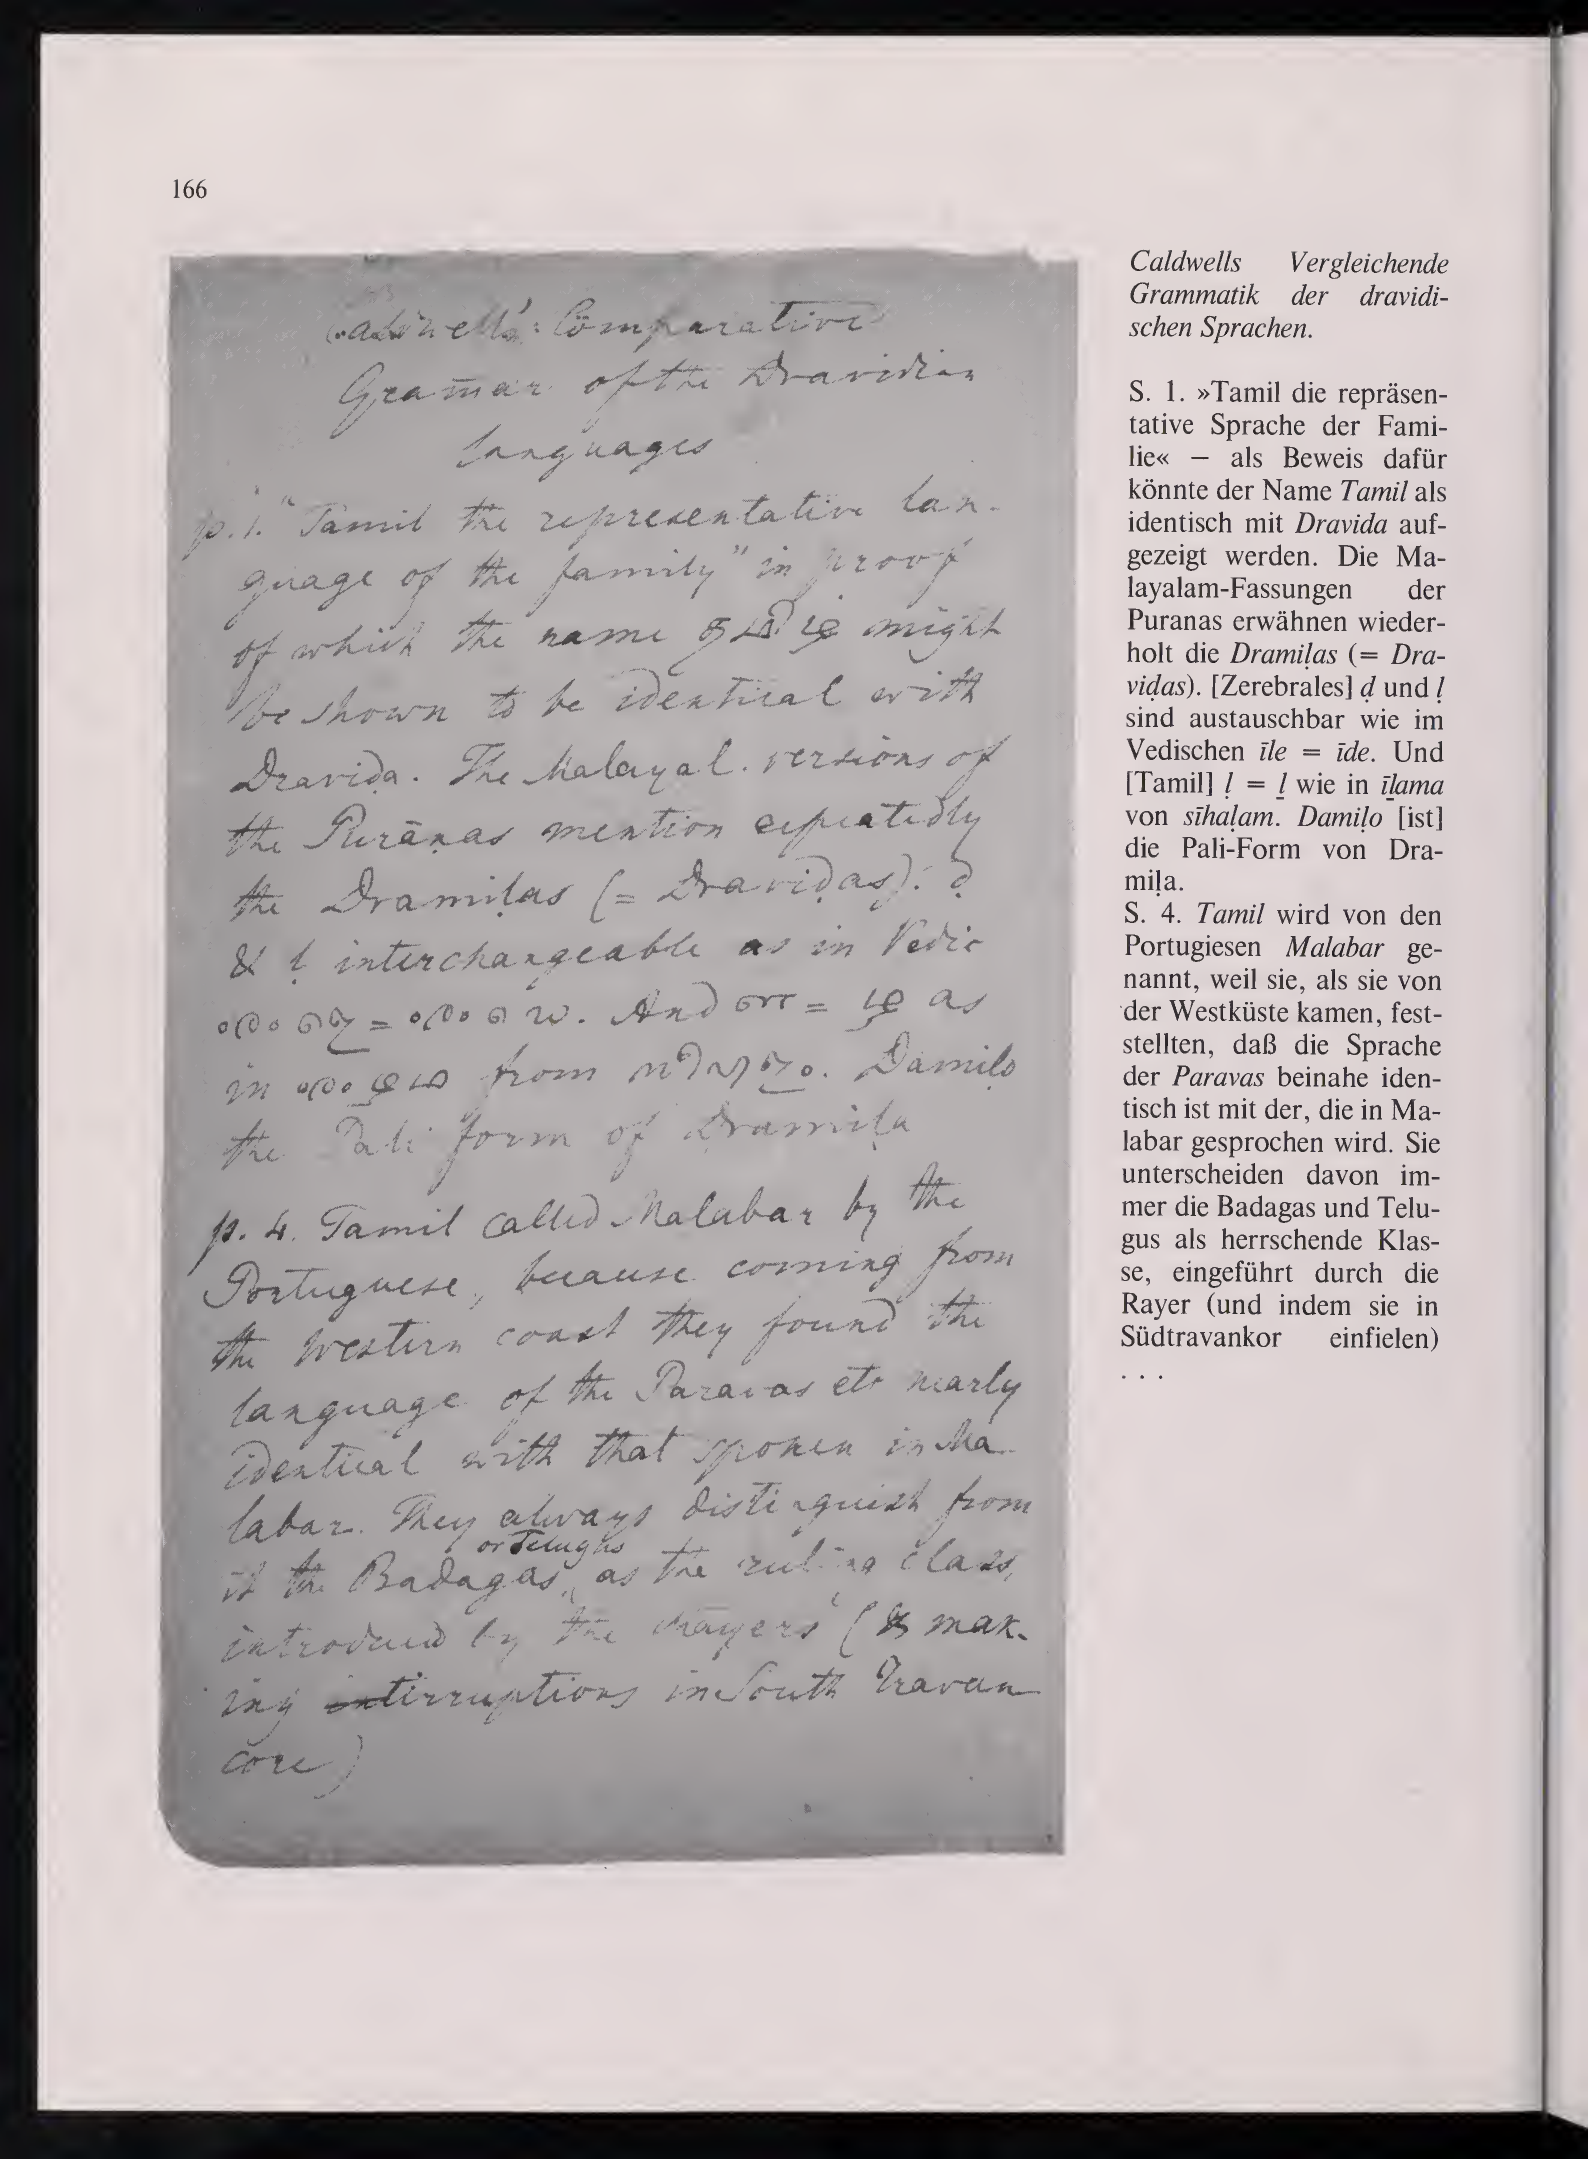 166
Caldwell's Comparative
Gram̄ar of the Dravidian
languages
p. 1. "Tamil the representative lan-
guage of the family" in proof
of which the name தமிழ் might
be shown to be identical with
Draviḍa. The Malayal. versions of
the Purāṇas mention repeatedly
the Dramiḷas (= Draviḍas). ḍ
& ḷ interchangeable as in Vedic
ഈളെ = ഈഡെ. And ள = ழ as
in ஈழம from സീഹളം. Damiḷo
the Pali form of Dramiḷa
p. 4. Tamil called Malabar by the
Portuguese, because coming from
the western coast they found the
language of the Paravas etc nearly
identical with that spoken in Ma
labar. They always distinguish from
or Telugus
it the Badagas, as the ruling class,
introduced by the Rayers (& mak-
ing irruptions in South Travan
core)
Caldwells Vergleichende
Grammatik der dravidi-
schen Sprachen.
S. 1. »Tamil die repräsen-
tative Sprache der Fami-
lie« – als Beweis dafür
könnte der Name Tamil als
identisch mit Dravida auf-
gezeigt werden. Die Ma-
layalam-Fassungen der
Puranas erwähnen wieder-
holt die Dramiḷas (= Dra-
viḍas). [Zerebrales] ḍ und ḷ
sind austauschbar wie im
Vedischen īle = īde. Und
[Tamil] ḷ = ḻ wie in īḻama
von sīhaḷam. Damiḷo [ist]
die Pali-Form von Dra-
miḷa.
S. 4. Tamil wird von den
Portugiesen Malabar ge-
nannt, weil sie, als sie von
der Westküste kamen, fest-
stellten, daß die Sprache
der Paravas beinahe iden-
tisch ist mit der, die in Ma-
labar gesprochen wird. Sie
unterscheiden davon im-
mer die Badagas und Telu-
gus als herrschende Klas-
se, eingeführt durch die
Rayer (und indem sie in
Südtravankor einfielen)
. . .